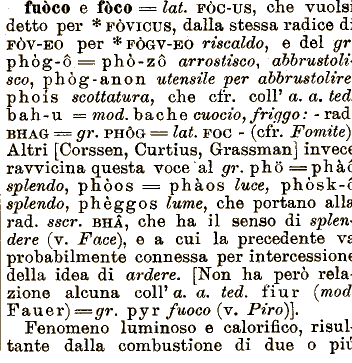 fuòco e fòco = lat. FÒC-US, che vuolsi
detto per *FÒVICUS, dalla stessa radice di
FÒV-EO per *FÒGV-EO riscaldo, e del gr
phòg-ô = phò-zô arrostisco, abbrustoli-
sco, phòg-anon utensile per abbrustolire
phois scottatura, che cfr. coll' a. a. ted.
bah-u = mod. bache cuocio, friggo: - rad
BHAG = gr. PHÔG = lat. FOC - (cfr. Fomite)
Altri [Corssen, Curtius, Grassman] invece
ravvicina questa voce al gr. phö = phàô
splendo, phòos = phàos luce, phòsk-ô
splendo, phèggos lume, che portano alla
rad. sscr. BHÂ, che ha il senso di splen-
dere (v. Face), e a cui la precedente va
probabilmente connessa per intercessione
della idea di ardere. [Non ha però rela-
zione alcuna coll' a. a. ted. fiur (mod
Fauer) = gr. pyr fuoco (v. Piro)].
Fenomeno luminoso e calorifico, risul-
tante dalla combustione di due o più